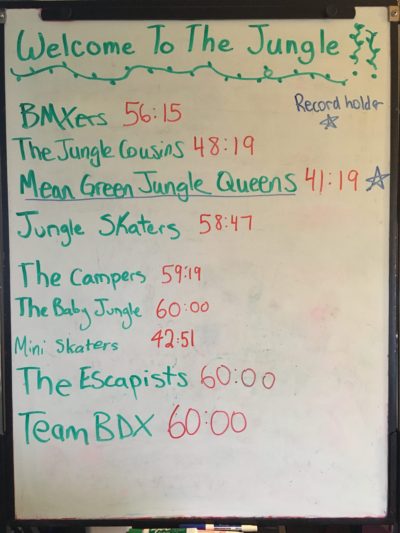 Welcome To The Jungle
Record holder
BMXers 56:15
The Jungle Cousins 48:19
Mean Green Jungle Queens 41:19
Jungle Skaters 58:47
The Campers 59:19
The Baby Jungle 60:00
Mini Skaters 42:51
The Escapists 60:00
Team BDX 60:00